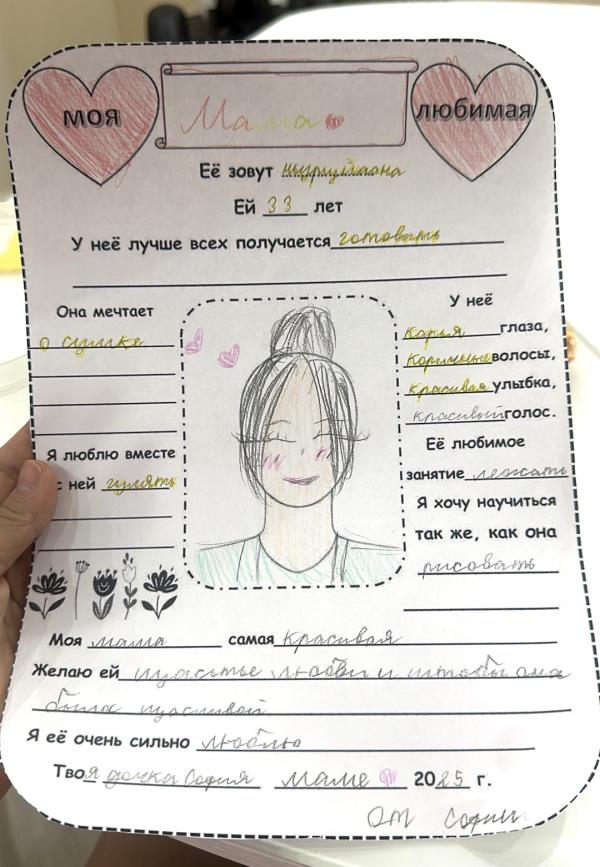 моя Мама любимая
Её зовут
Ей 33 лет
У неё лучше всех получается готовить
Она мечтает
о сумке
Я люблю вместе
с ней гулять
У неё
карья глаза,
коричные волосы,
красивая улыбка,
красивый голос.
Её любимое
занятие лежать
Я хочу научиться
так же, как она
рисовать
Моя мама самая красивая
Желаю ей щасьтье любви и штобы она
была щасливой
Я её очень сильно люблю
Твоя дочка София маме 2025 г.
От Софии